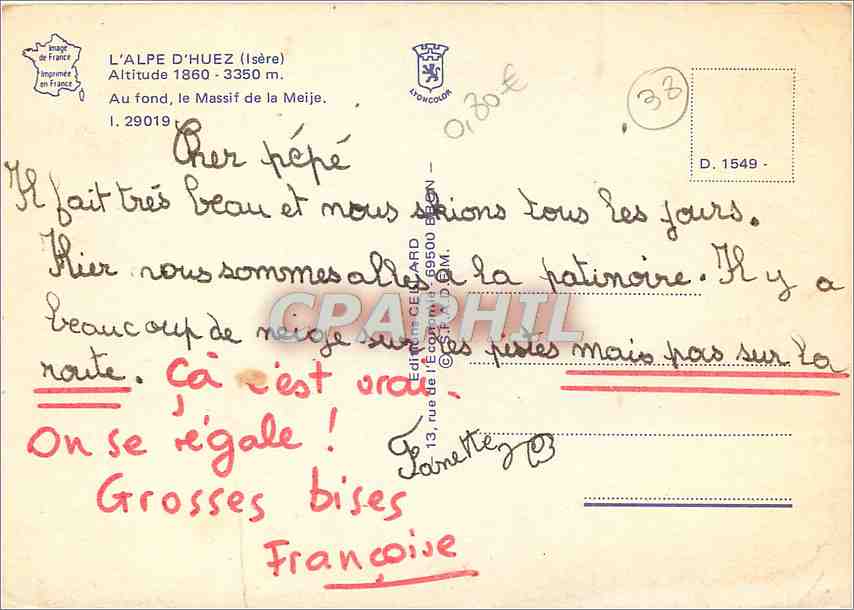 Image
de France
Imprimée
en France
L'ALPE D'HUEZ (Isère)
Altitude 1860 - 3350 m.
Au fond, le Massif de la Meije.
I. 29019
LYONCOLOR
0,80€
38
D. 1549 -
Cher pépé
Il fait très beau et nous skions tous les jours.
Hier nous sommes allés à la patinoire. Il y a
beaucoup de neige sur les pistes mais pas sur la
route. Çà c'est vrai.
On se régale !
Fanette
Grosses bises
Françoise
Editions CELLARD
13, rue de l'Economie, 69500 BRON -
© S.P.A.D.E.M.
CPAPHIL